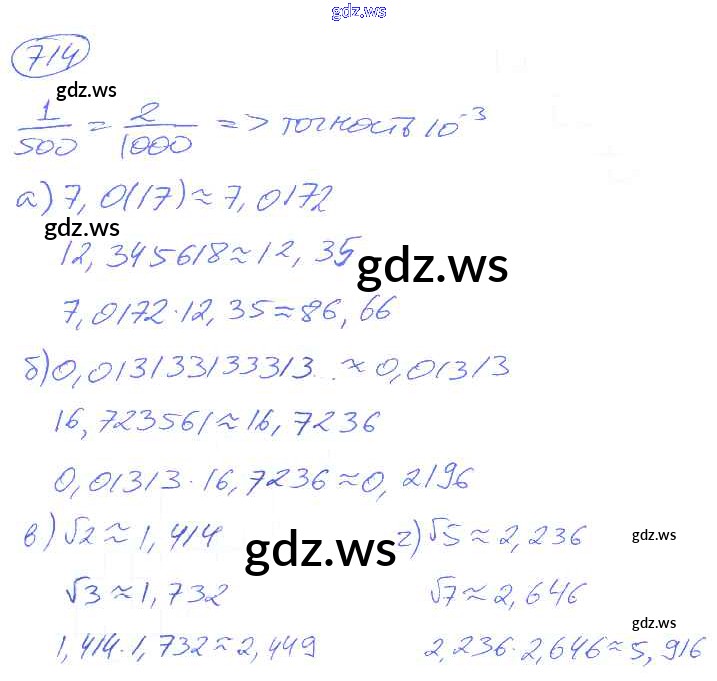 gdz.ws
714
gdz.ws
1/500 = 2/1000 => точность 10⁻³
а) 7,0(17) ≈ 7,0172
gdz.ws
12,345618 ≈ 12,35
gdz.ws
7,0172 · 12,35 ≈ 86,66
б) 0,01313313331 3... ≈ 0,01313
16,723561 ≈ 16,7236
0,01313 · 16,7236 ≈ 0,2196
в) √2 ≈ 1,414 г) √5 ≈ 2,236
gdz.ws
gdz.ws
√3 ≈ 1,732 √7 ≈ 2,646
gdz.ws
1,414 · 1,732 ≈ 2,449 2,236 · 2,646 ≈ 5,916